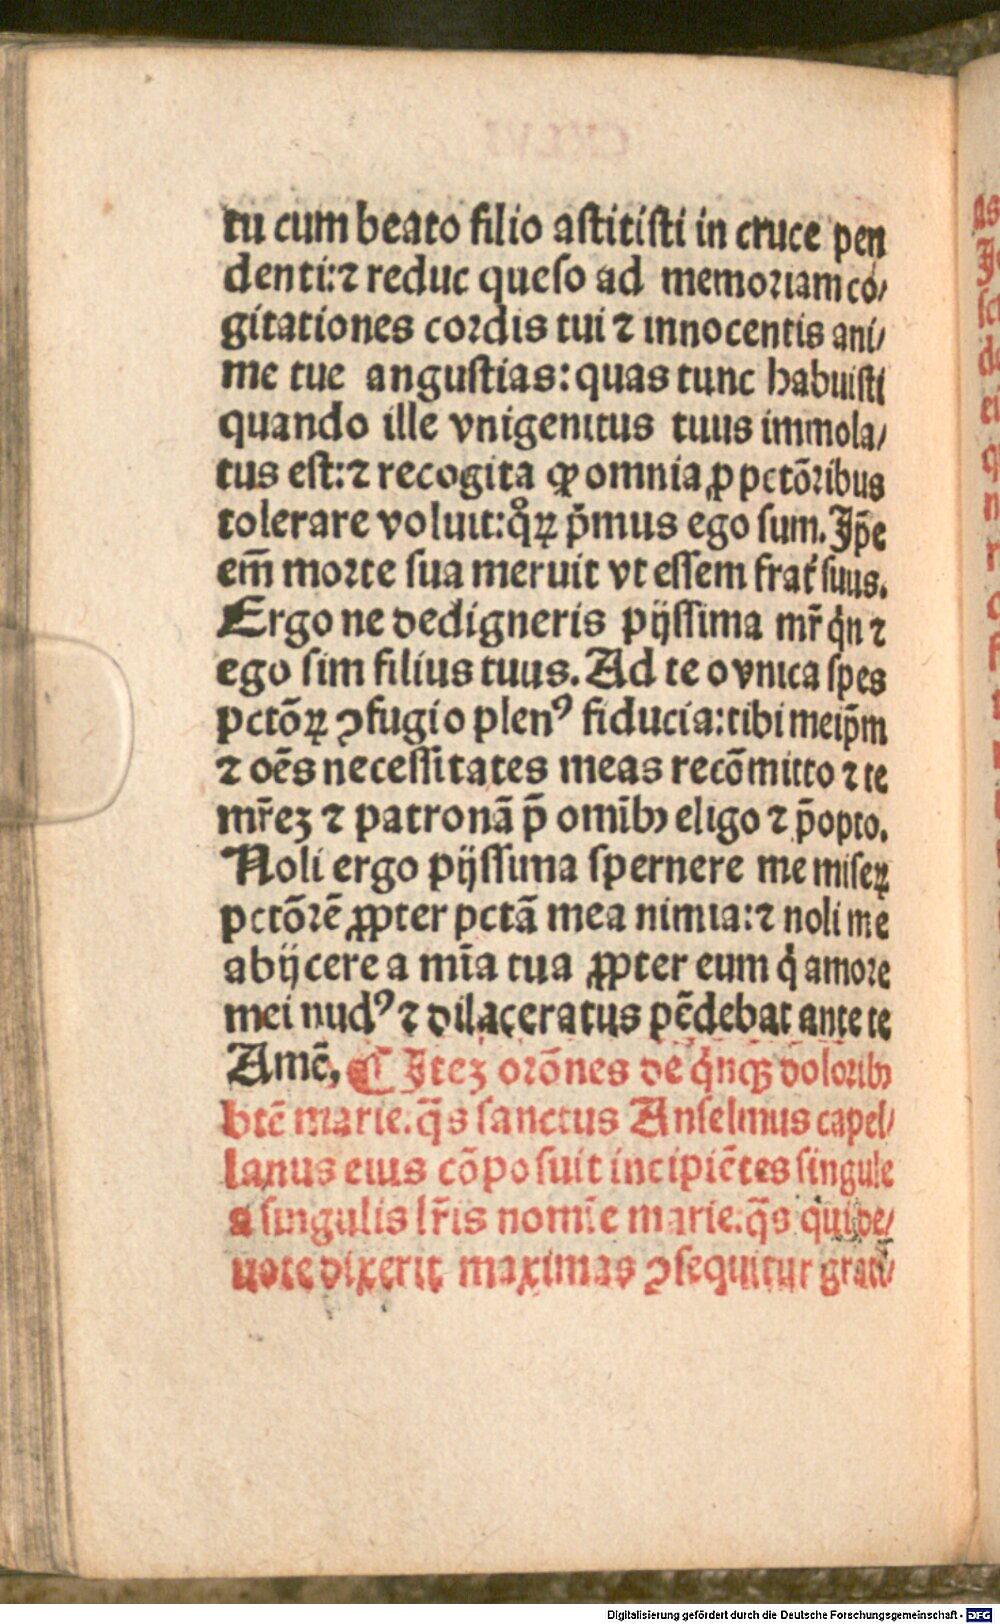 tu cum beato filio aſtitiſti in cruce pen
denti:⁊ reduc queſo ad memoriam co/
gitationes cordis tui ⁊ innocentis ani/
me tue anguſtias: quas tunc habuiſti
quando ille vnigenitus tuus immola/
tus eſt:⁊ recogita ꝙ omnia ꝓ pctõribus
tolerare voluit:qͦꝝ p̃mus ego ſum. Ip̃e
em̃ morte ſua meruit vt eſſem frat̃ ſuus.
Ergo ne dedigneris pijſſima mr̃ qͥn ⁊
ego ſim filius tuus. Ad te o vnica ſpes
pctõꝝ ꝯfugio plenꝰ fiducia:tibi meip̃m
⁊ oẽs neceſſitates meas recõmitto ⁊ te
mr̃eꝫ ⁊ patronã p̃ omĩbꝰ eligo ⁊ p̃opto.
Noli ergo pijſſima ſpernere me miſeꝝ
pctõrẽ ꝓpter pctã mea nimia:⁊ noli me
abijcere a mĩa tua ꝓpter eum qͥ amore
mei nudꝰ ⁊ dilaceratus pẽdebat ante te
Amẽ. ¶ Iteꝫ orõnes de qͥnqꝫ doloribꝰ
btẽ marie.q̃s ſanctus Anſelmus capel/
lanus eius cõpoſuit incipiẽtes ſingule
a ſingulis lr̃is nomĩe marie.q̃s qui de/
uote dixerit maximas ꝯſequitur grati/
Digitalisierung gefördert durch die Deutsche Forschungsgemeinschaft - DFG